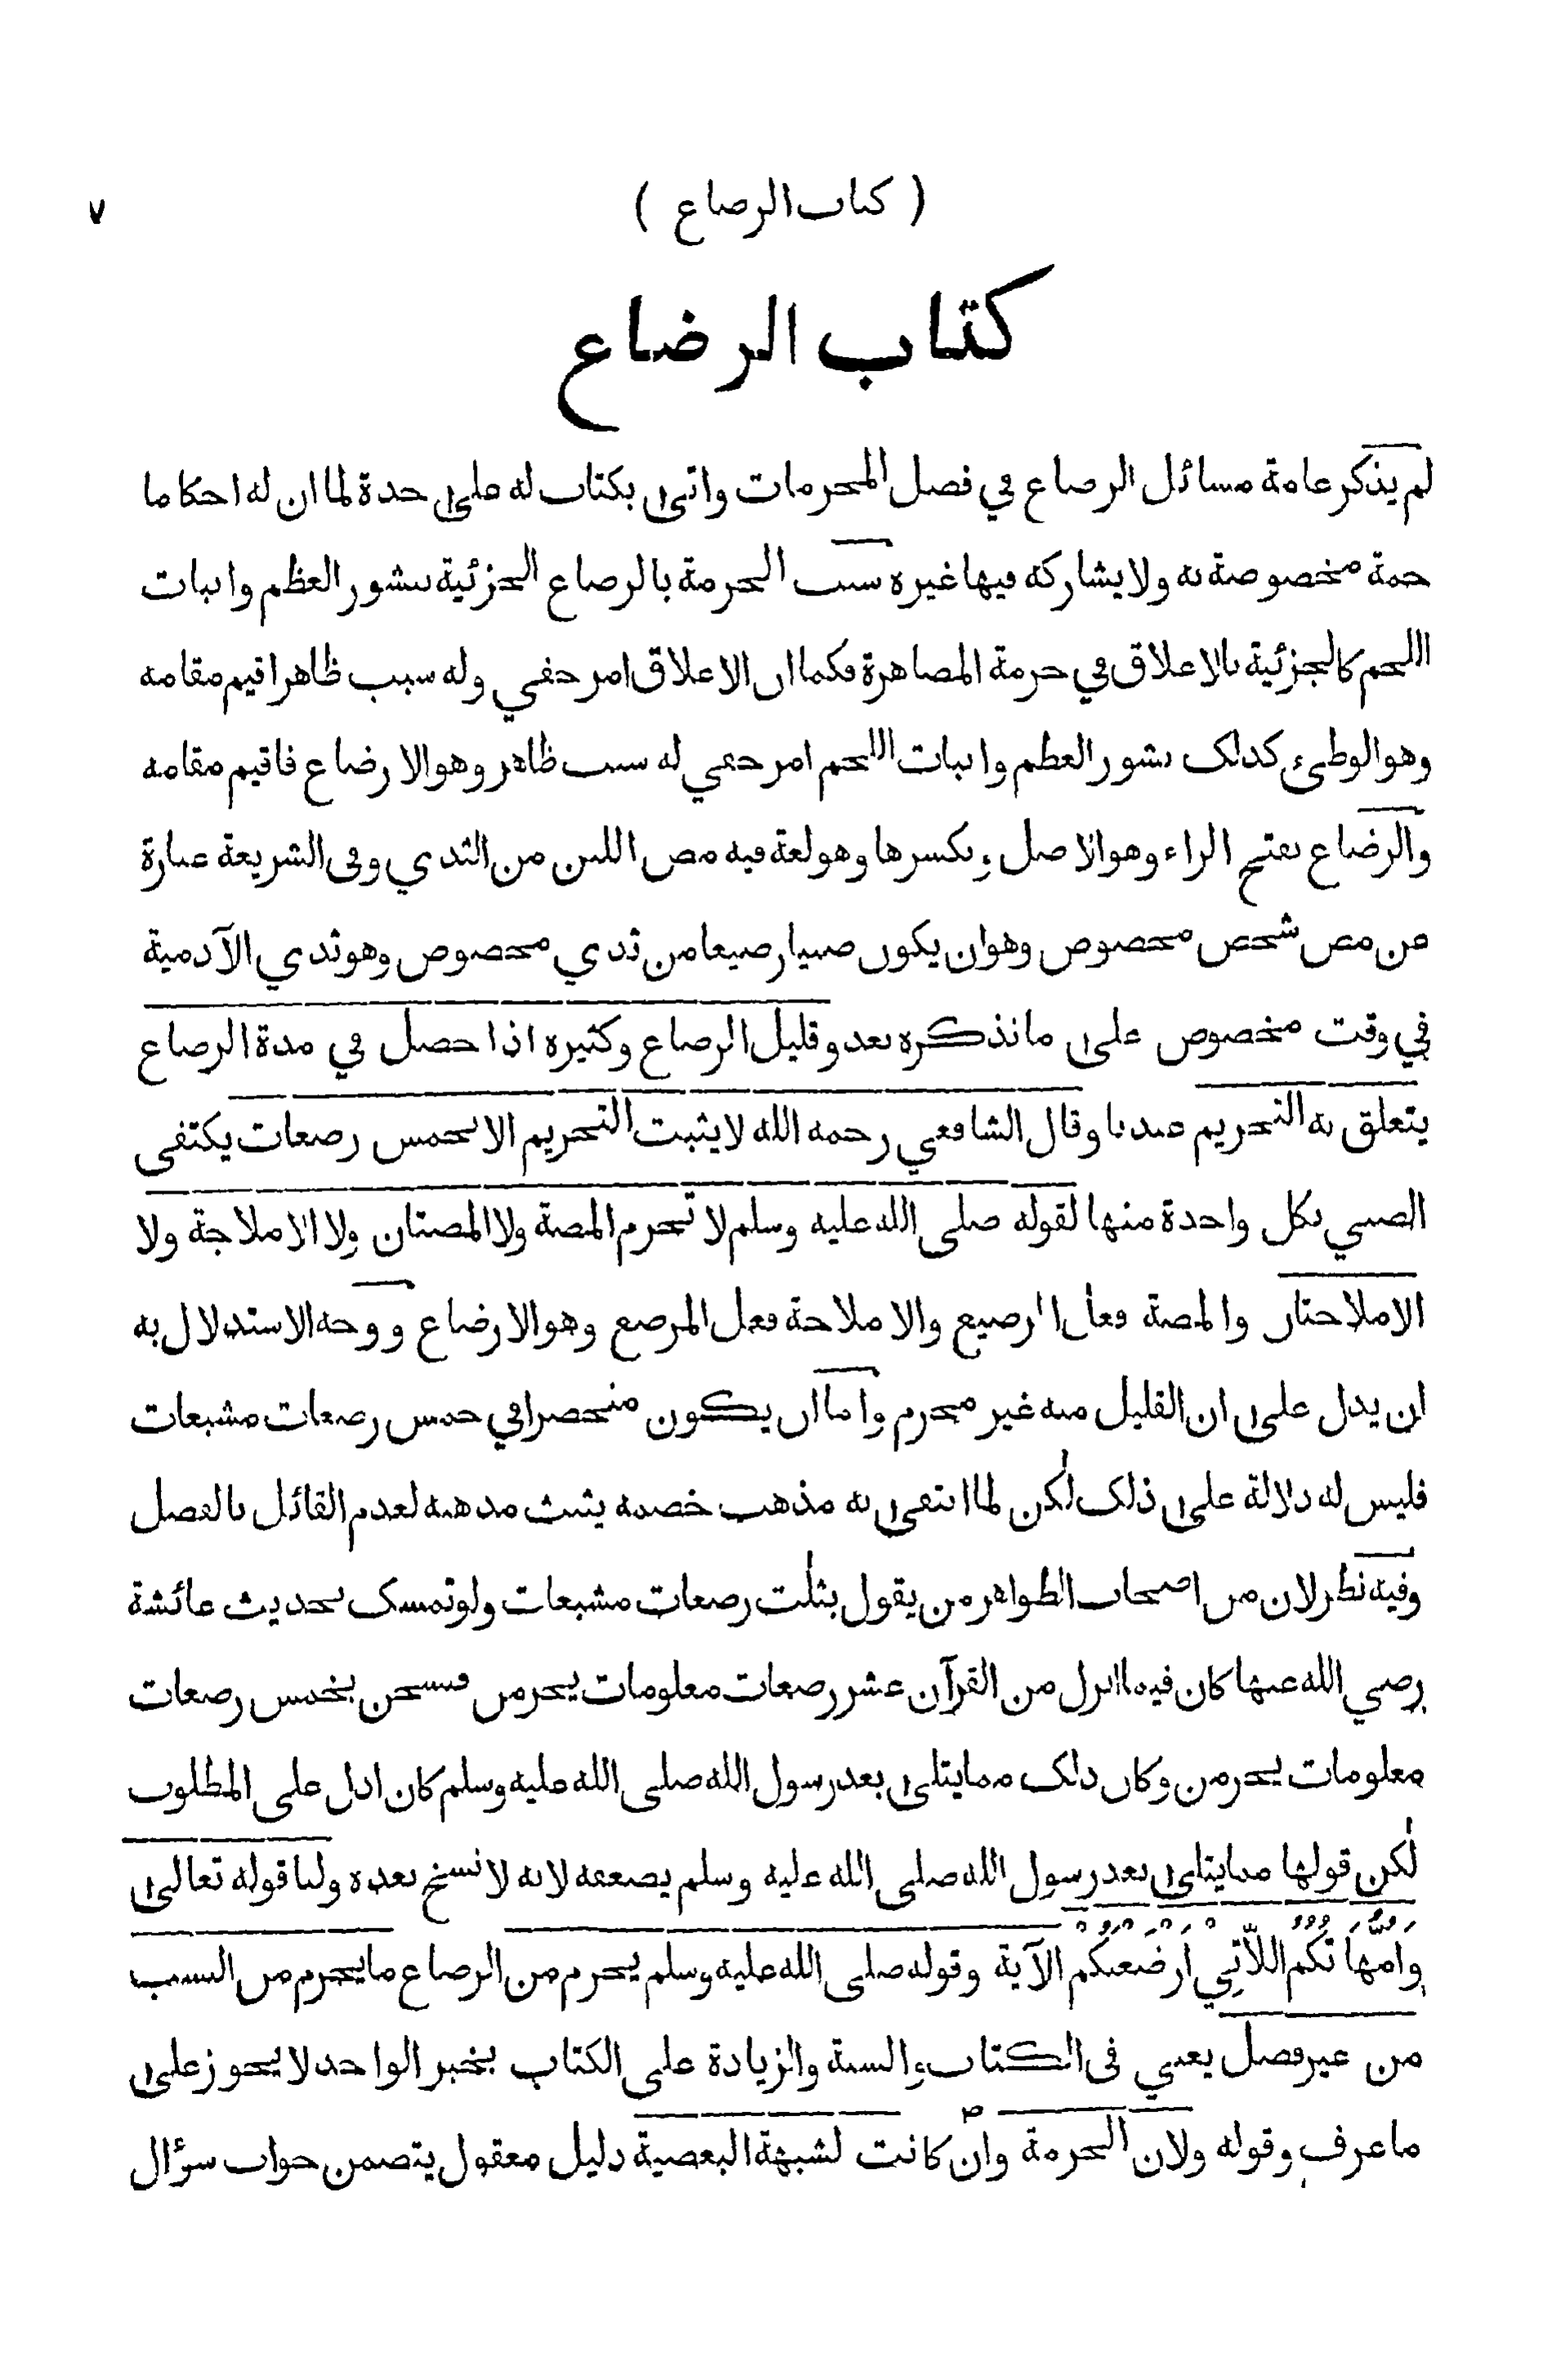 ( كتاب الرضاع ) ٧
كتاب الرضاع
لم يذكر عامة مسائل الرضاع في فصل المحرمات واتى بكتاب له على حدة لما ان له احكاما
جمة مخصوصة به ولا يشاركه فيها غيره سبب الحرمة بالرضاع الجزئية بنشور العظم وانبات
اللحم كالجزئية بالاعلاق في حرمة المصاهرة فكما ان الاعلاق امر خفي وله سبب ظاهر اقيم مقامه
وهو الوطىء كذلك نشور العظم وانبات اللحم امر خفي له سبب ظاهر وهو الارضاع فاقيم مقامه
والرضاع بفتح الراء وهو الاصل وبكسرها وهو لغة فيه مص اللبن من الثدي وفى الشريعة عبارة
عن مص شخص مخصوص وهو ان يكون صبيا رضيعا من ثدي مخصوص وهو ثدي الآدمية
في وقت مخصوص على ما نذكره بعد وقليل الرضاع وكثيره اذا حصل في مدة الرضاع
يتعلق به التحريم عندنا وقال الشافعي رحمه الله لا يثبت التحريم الا بخمس رضعات يكتفى
الصبي بكل واحدة منها لقوله صلى الله عليه وسلم لا تحرم المصة ولا المصتان ولا الاملاجة ولا
الاملاجتان والمصة فعل الرضيع والاملاجة فعل المرضع وهو الارضاع ووجه الاستدلال به
ان يدل على ان القليل منه غير محرم واما ان يكون منحصرا في خمس رضعات مشبعات
فليس له دلالة على ذلك لكن لما انتفى به مذهب خصمه يثبت مذهبه لعدم القائل بالفصل
وفيه نظر لان من اصحاب الظواهر من يقول بثلث رضعات مشبعات ولو تمسك بحديث عائشة
رضي الله عنها كان فيما انزل من القرآن عشر رضعات معلومات يحرمن فنسخن بخمس رضعات
معلومات يحرمن وكان ذلك مما يتلى بعد رسول الله صلى الله عليه وسلم كان ادل على المطلوب
لكن قولها مما يتلى بعد رسول الله صلى الله عليه وسلم يضعفه لانه لا نسخ بعده ولنا قوله تعالى
وَاُمَّهَاتُكُمُ اللَّاتِي اَرْضَعْنَكُمْ الآية وقوله صلى الله عليه وسلم يحرم من الرضاع ما يحرم من النسب
من غير فصل يعني فى الكتاب والسنة والزيادة على الكتاب بخبر الواحد لا يجوز على
ما عرف وقوله ولان الحرمة وان كانت لشبهة البعضية دليل معقول يتضمن جواب سؤال